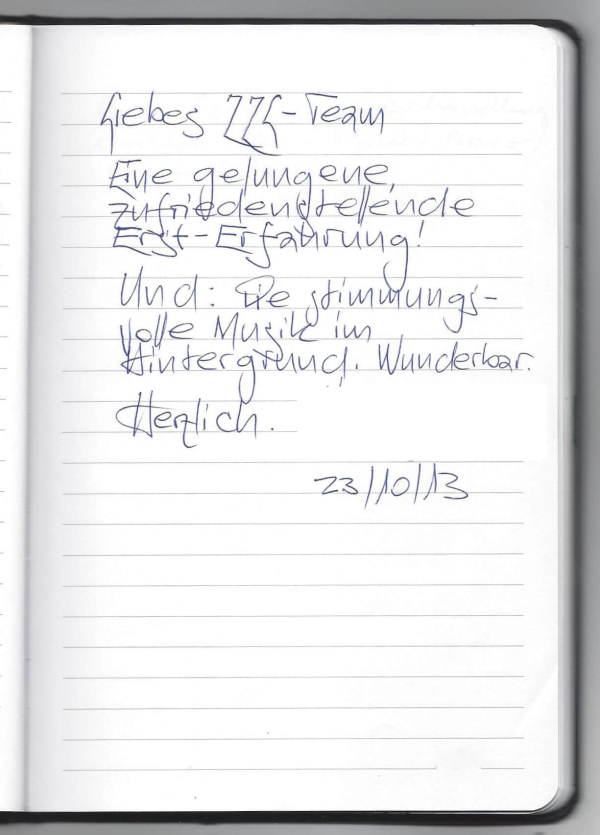 Liebes ZZZ-Team
Eine gelungene,
zufriedenstellende
Erst-Erfahrung!
Und: Die stimmungs-
volle Musik im
Hintergrund. Wunderbar.
Herzlich.
23/10/13